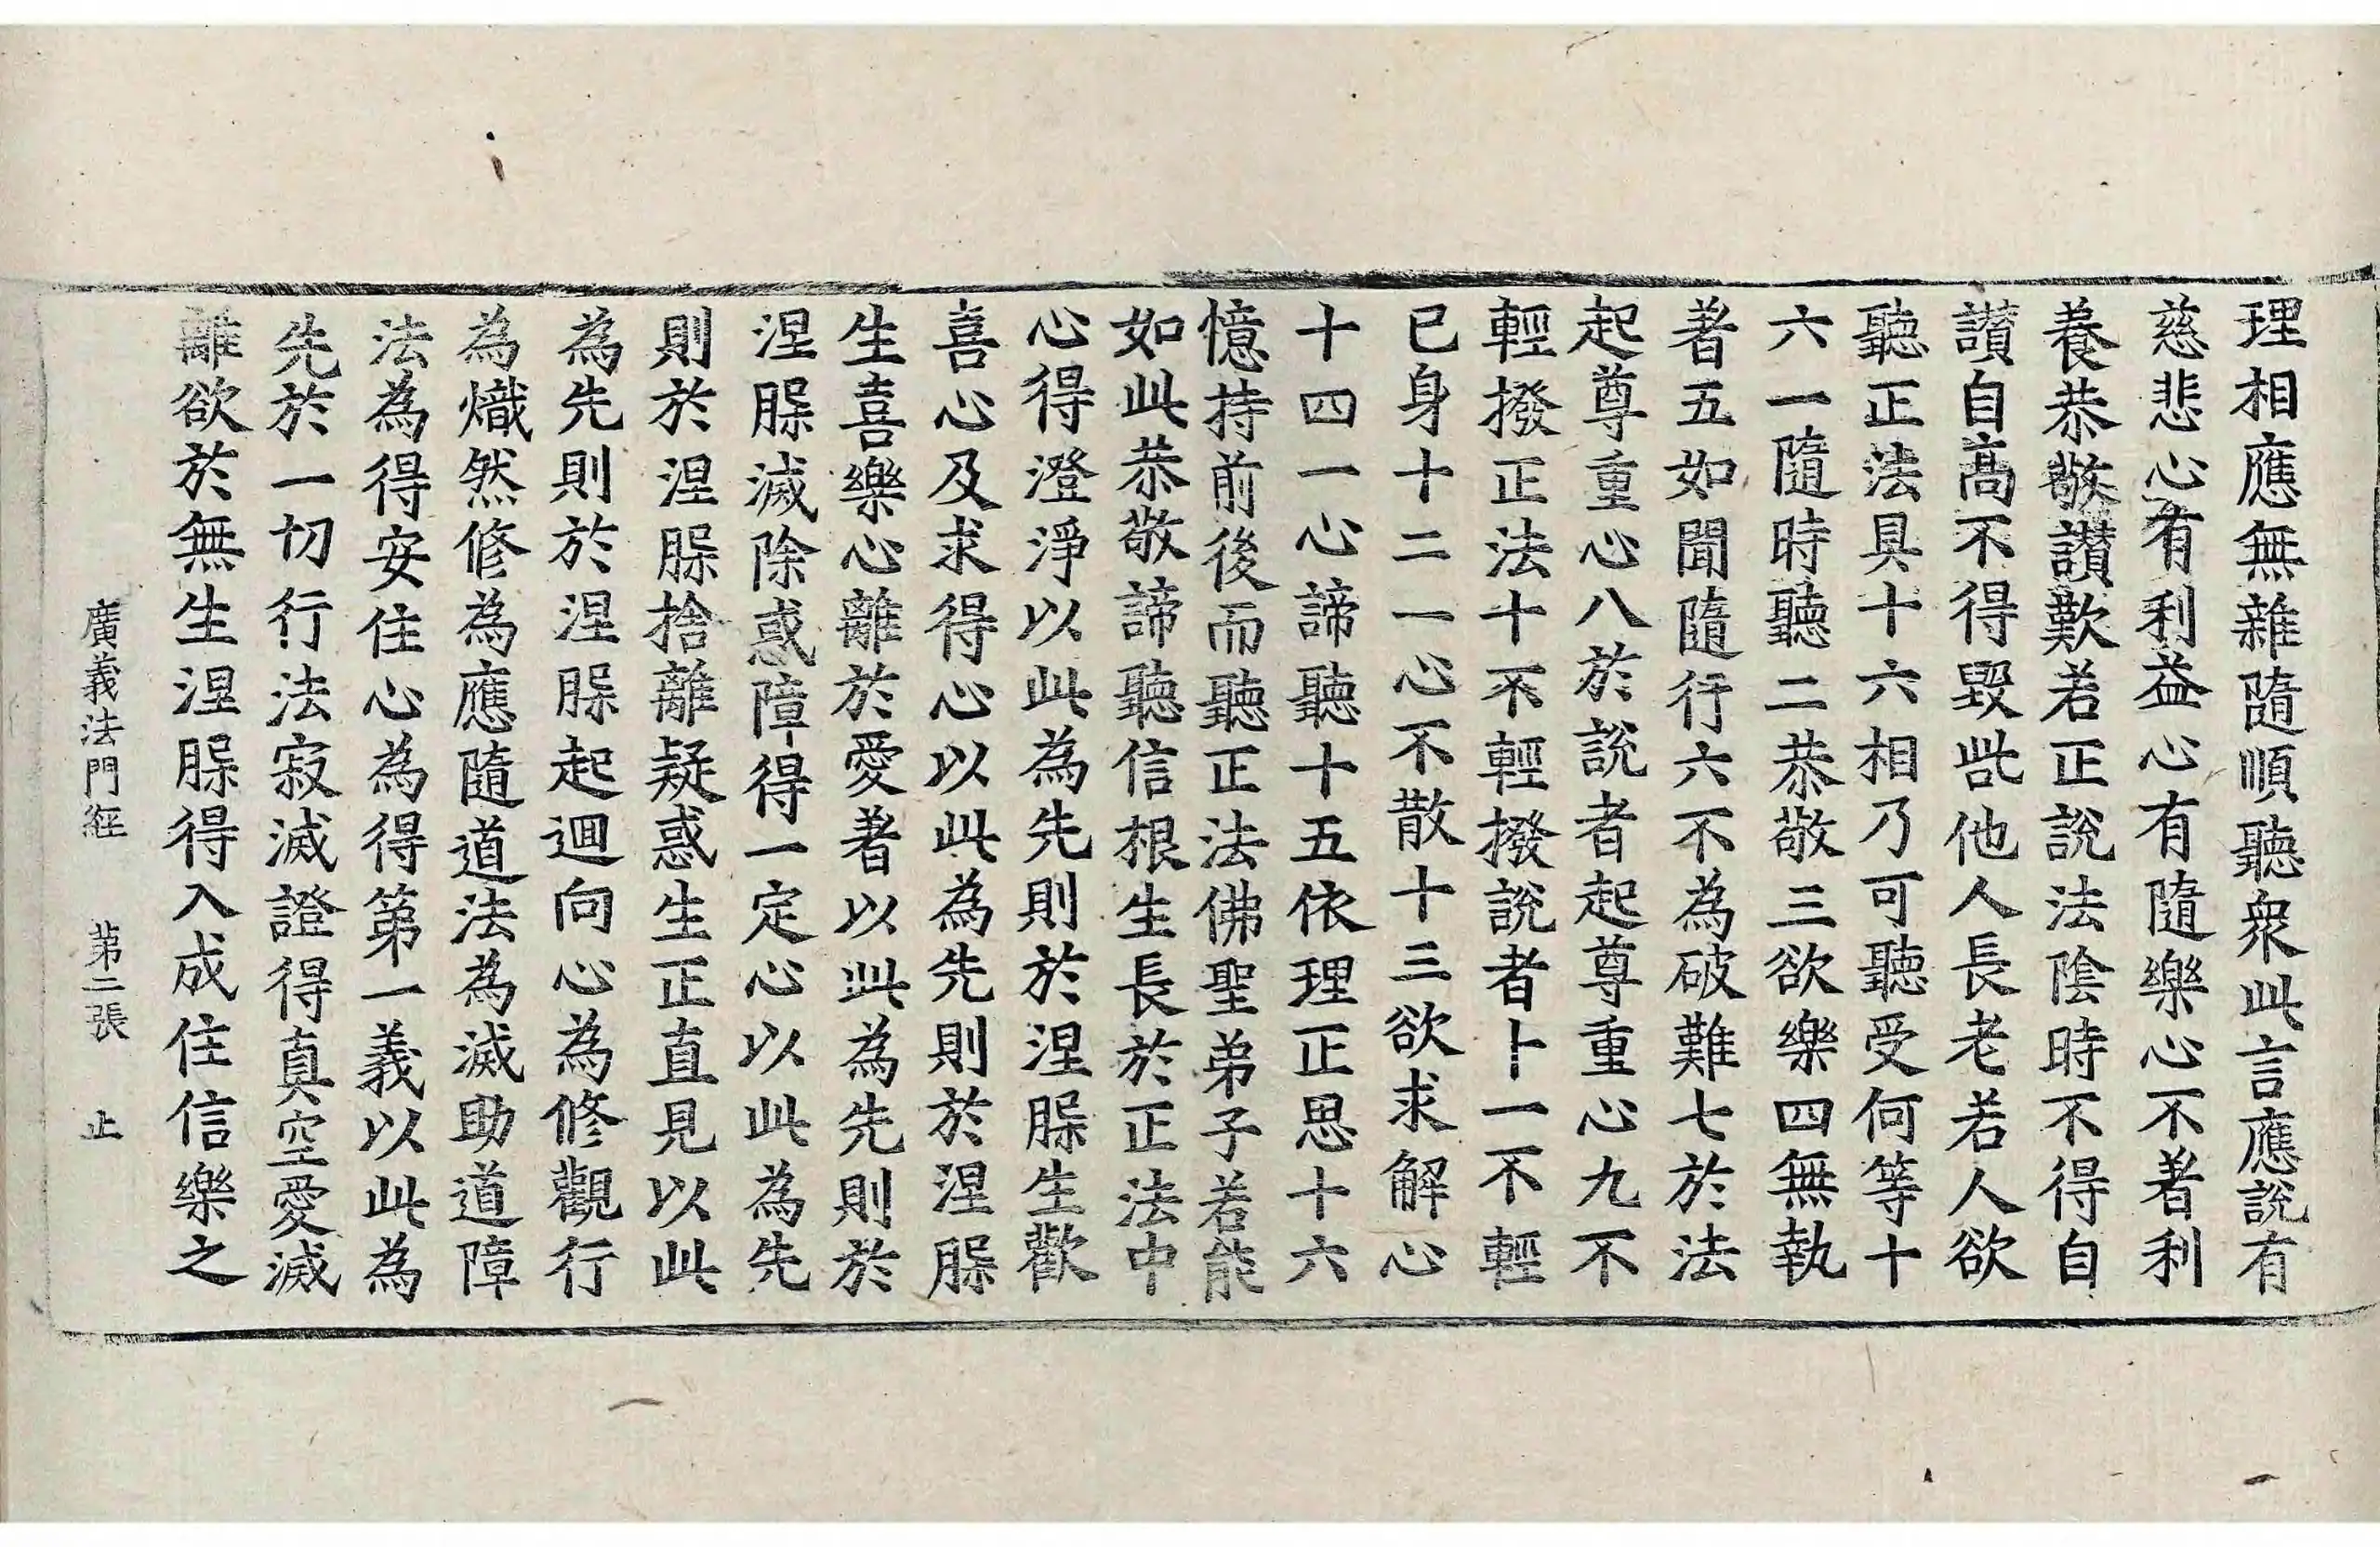 理相應無雜隨順聽衆此言應說有
慈悲心有利益心有隨樂心不著利
養恭敬讃歎若正說法隂時不得自
讃自髙不得毀呰他人長老若人欲
聽正法具十六相乃可聽受何等十
六一隨時聽二恭敬三欲樂四無執
著五如聞隨行六不為破難七於法
起尊重心八於說者起尊重心九不
輕撥正法十不輕撥說者十一不輕
已身十二一心不散十三欲求解心
十四一心諦聽十五依理正思十六
憶持前後而聽正法佛聖弟子若能
如此恭敬諦聽信根生長於正法中
心得澄淨以此為先則於涅槃生歡
喜心及求得心以此為先則於涅槃
生喜樂心離於愛著以此為先則於
涅槃滅除惑障得一定心以此為先
則於涅槃捨離疑惑生正直見以此
為先則於涅槃起迴向心為修觀行
為熾然修為應隨道法為滅助道障
法為得安住心為得第一義以此為
先於一切行法寂滅證得真空愛滅
離欲於無生涅槃得入成住信樂之
廣義法門經 第二張 止